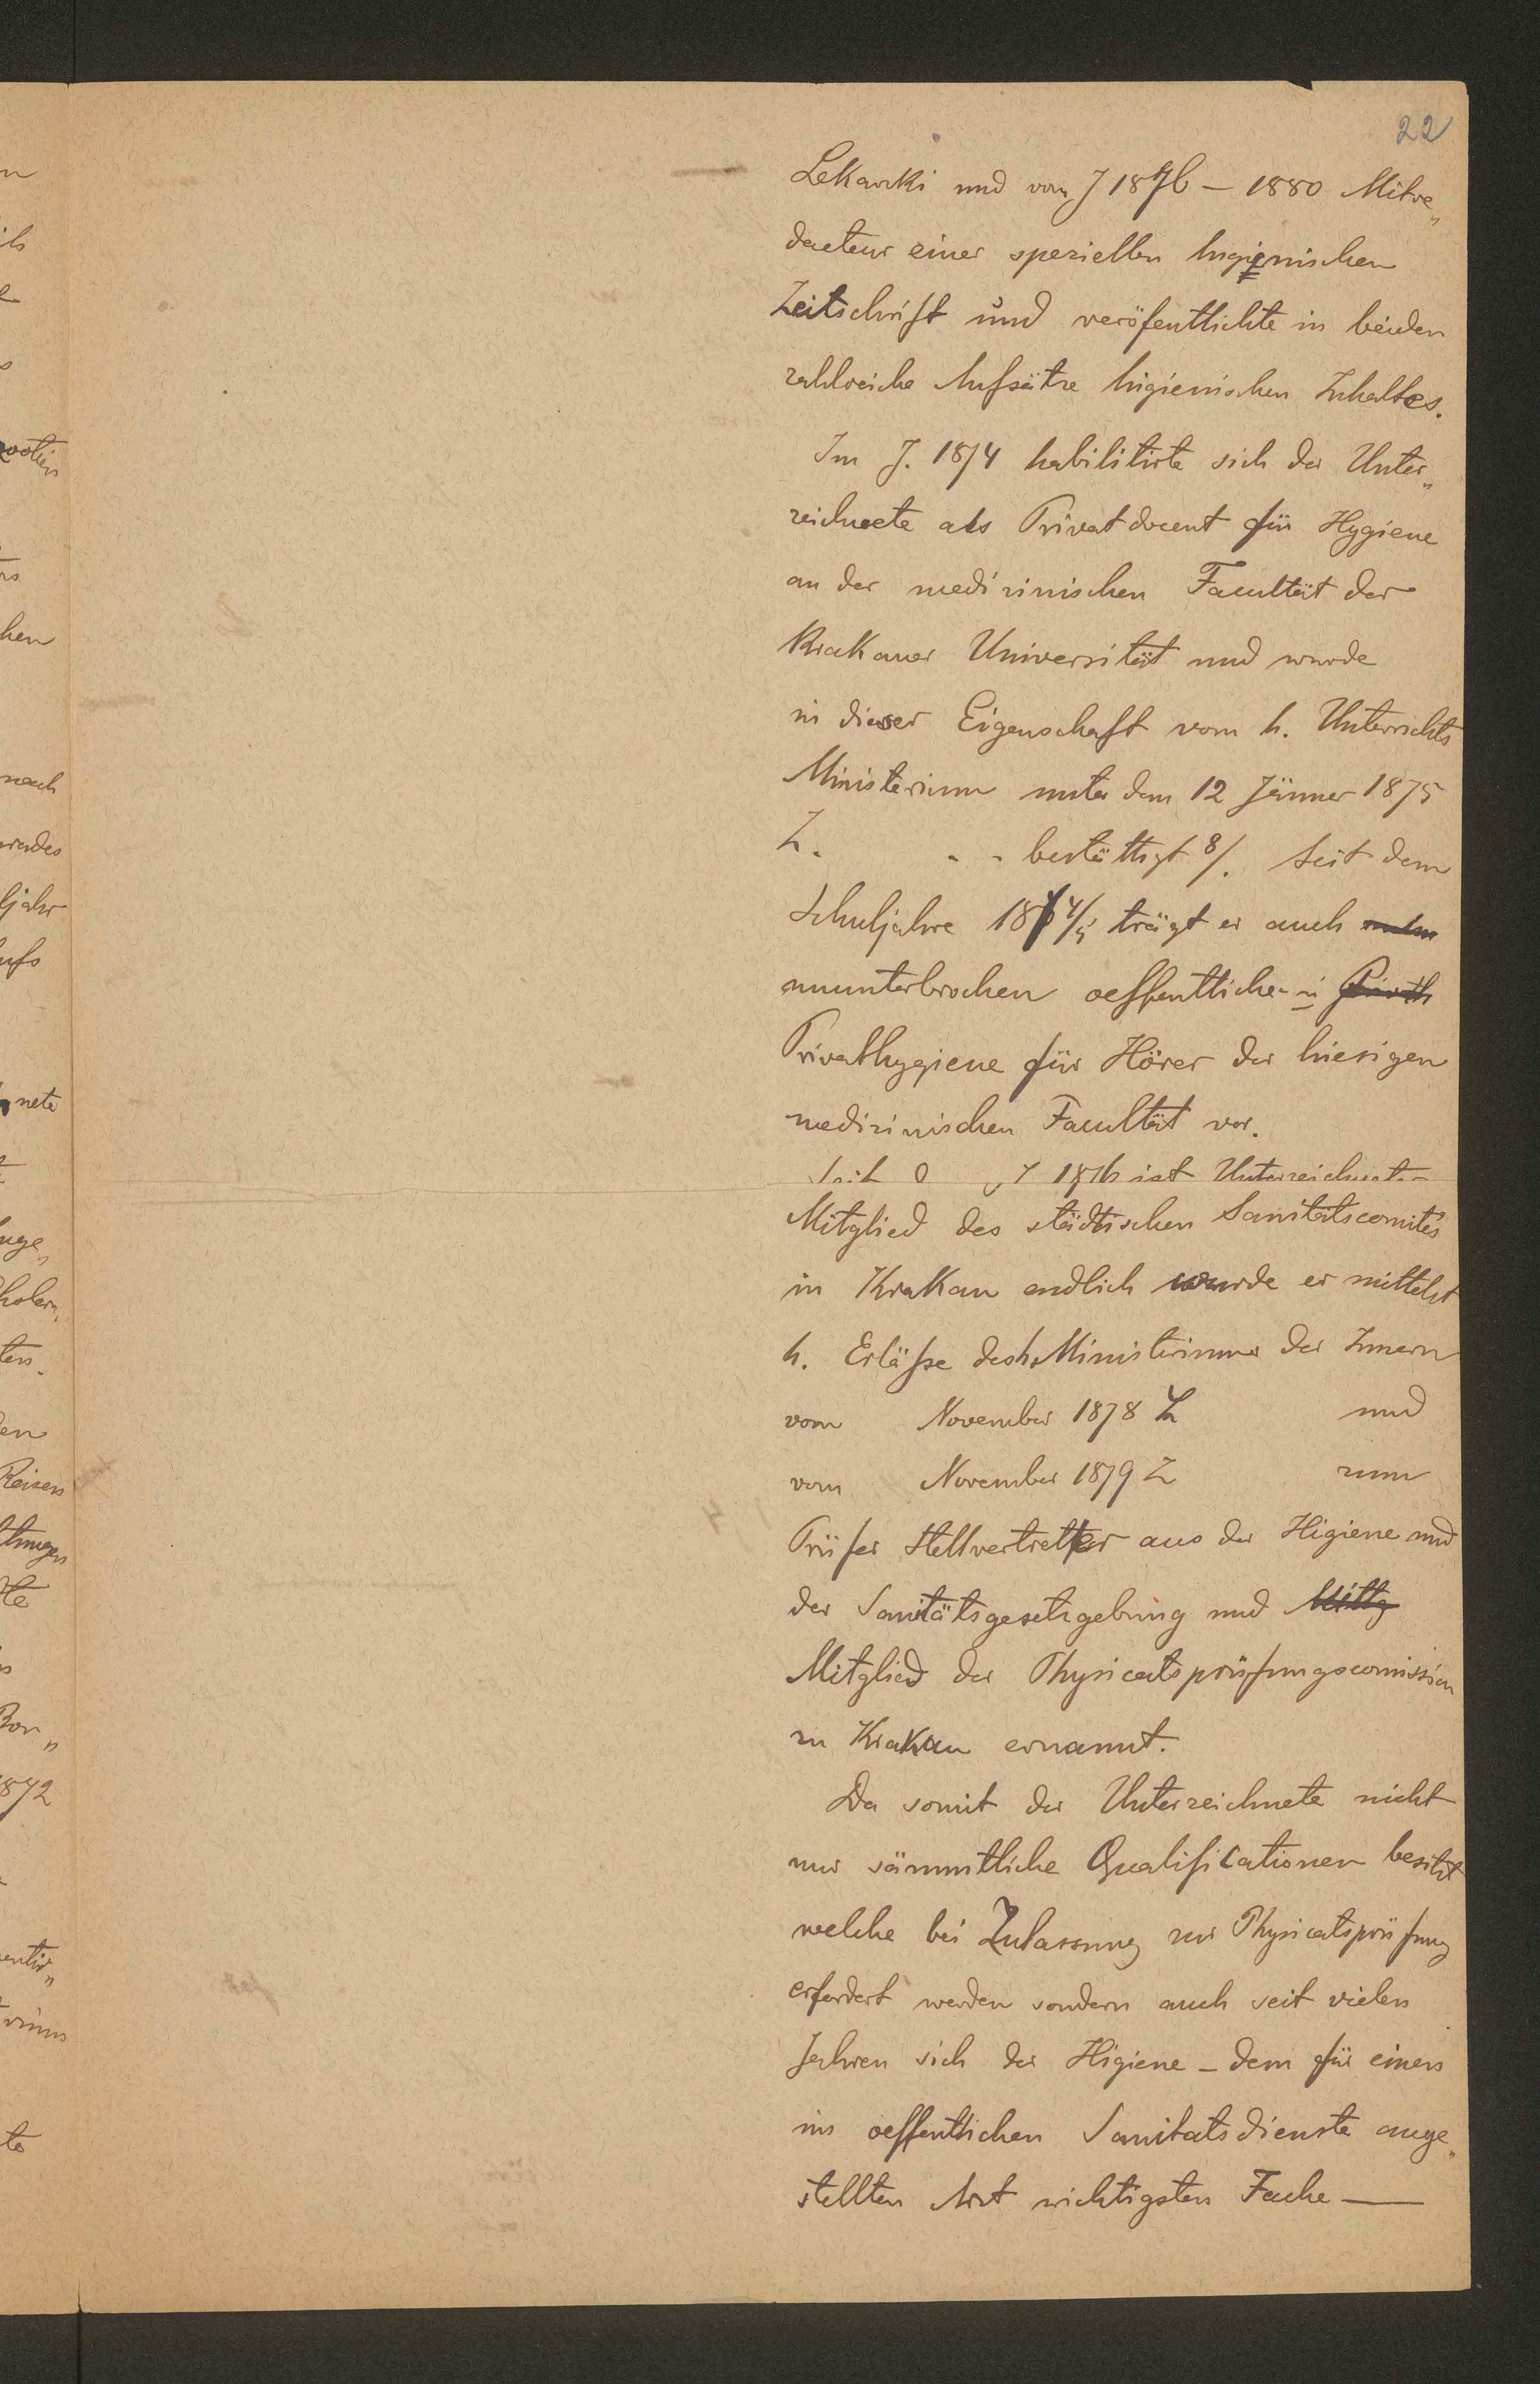 22
Lekarski und vom J 1876 – 1880 Mitre„
dacteur einer speziellen higienischen
Zeitschrift und veröfentlichte in beiden
zahlreiche Aufsätze higienischen Inhaltes.
Im J. 1874 habilitirte sich der Unter„
zeichnete als Privatdocent für Hygiene
an der medizinischen Facultät der
Krakauer Universität und wurde
in dieser Eigenschaft vom h. Unterrichts
Ministerium unter dem 12 Jänner 1875
Z. . . bestättigt 8/. Seit dem
Schuljahre 1874/5 trägt er auch
ununterbrochen oeffentliche- u
Privathygiene für Hörer der hiesigen
medizinischen Facultät vor.
Seit J 1876 ist Unterzeichneter
Mitglied des städtischen Sanitätscomités
in Krakau endlich wurde er mittelst
h. Erläße des h. Ministeriums des Innern
vom November 1878 Z und
vom November 1879 Z zum
Prüfer Stellvertretter aus der Higiene und
der Sanitätsgesetzgebung und Mittg
Mitglied der Physicatsprüfungscomission
zu Krakau ernannt.
Da somit der Unterzeichnete nicht
nur sämmtliche Qualificationen besitzt
welche bei Zulassung zur Physicatsprüfung
erfordert werden sondern auch seit vielen
Jahren sich der Higiene – dem für einen
im oeffentlichen Sanitatsdienste ange„
stellten Arzt wichtigsten Fache —